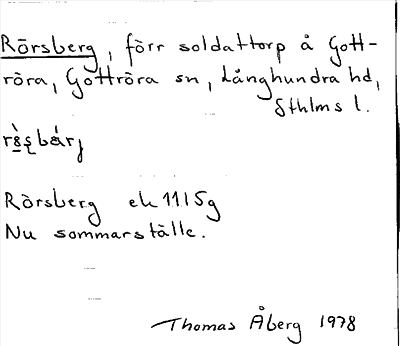 Rörsberg, förr soldattorp å Gott-
röra, Gottröra sn, Långhundra hd,
Sthlms l.
Rörsberg ek 11I5g
Nu sommarställe.
Thomas Åberg 1978